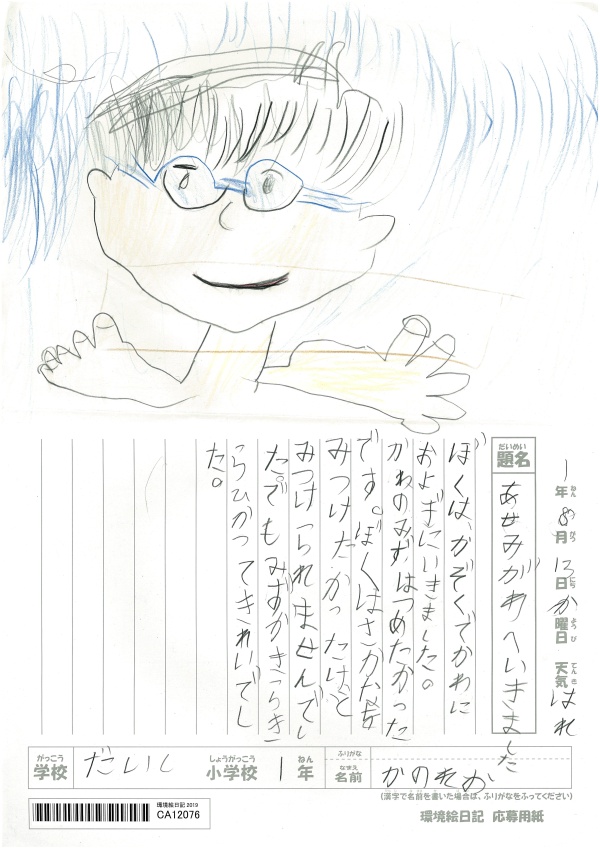 1年8月13日か曜日 天気はれ
ねん がつ にち ようび てんき
だいめい
題名 あせみがわへいきました
ぼくは、かぞくでかわに
およぎにいきました。
かわのみずはつめたかった
です。ぼくはさかなを
みつけたかったけど
みつけられませんでし
た。でもみずがきらき
らひかってきれいでし
た。
がっこう
学校 だいし
しょうがっこう
小学校
1年
ねん
ふりがな
なまえ
名前
(漢字で名前を書いた場合は、ふりがなをふってください)
環境絵日記 2019
CA12076
環境絵日記 応募用紙